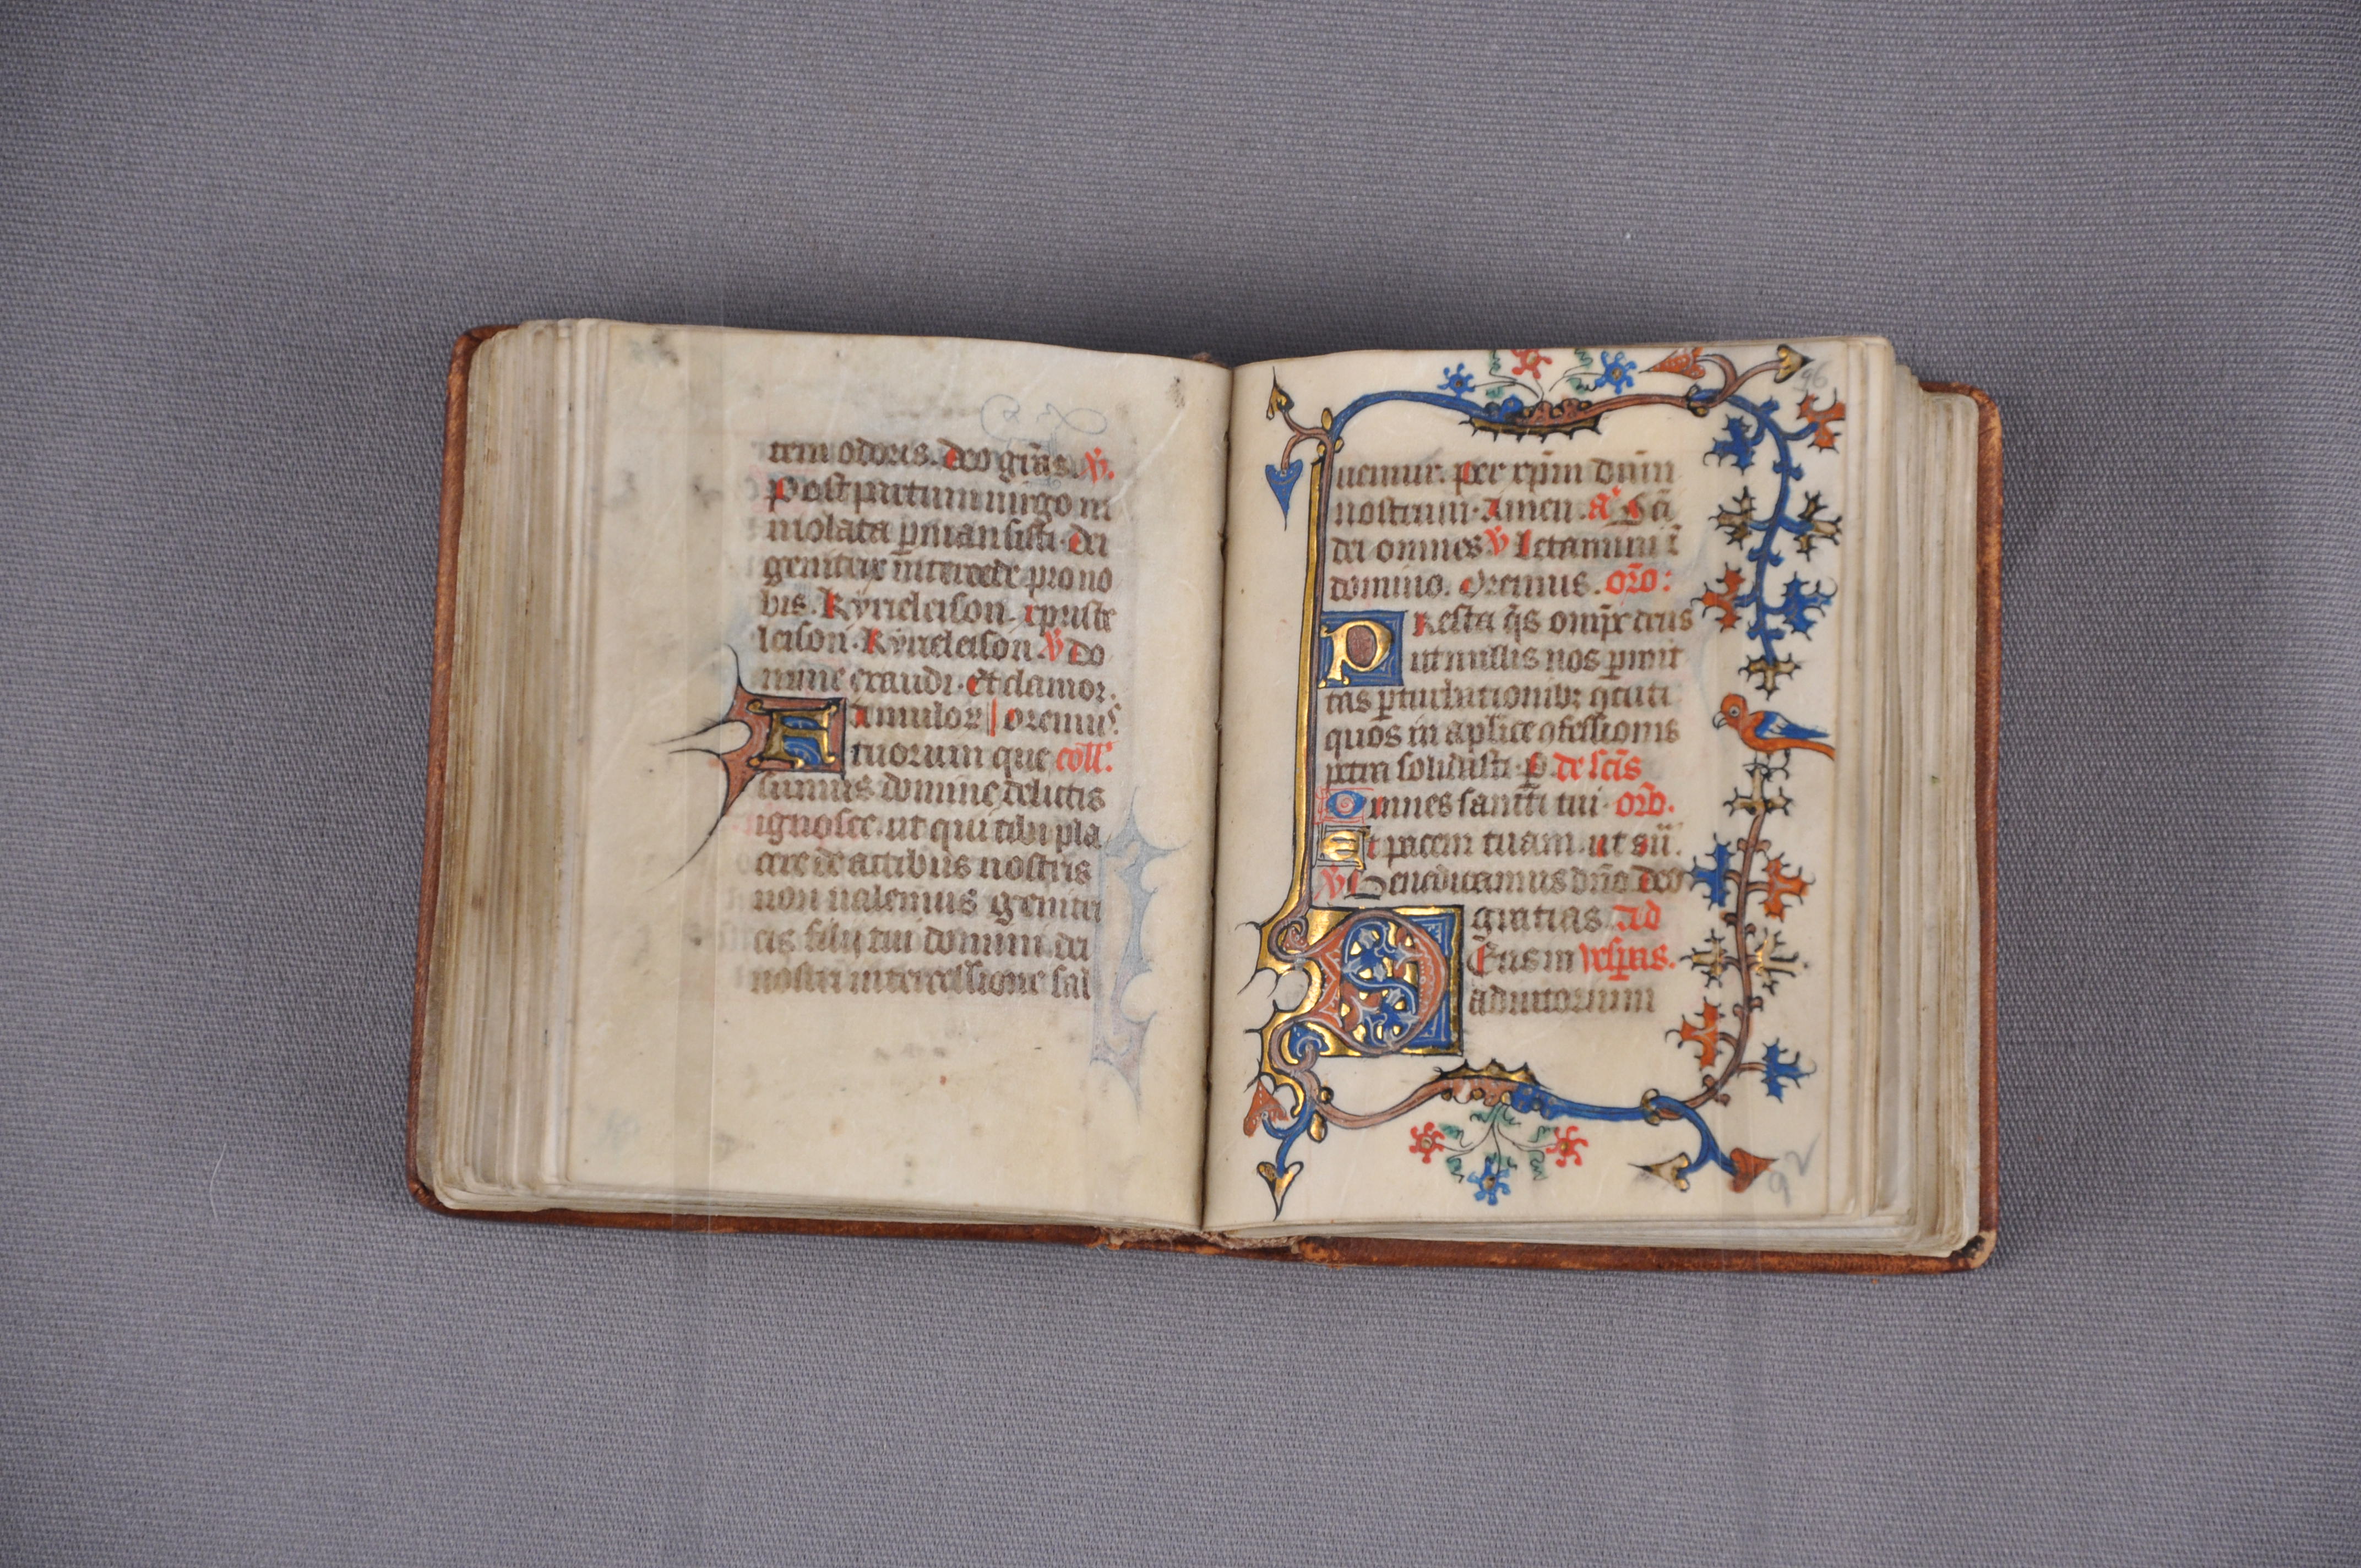 tem odoris. Deo grãs. v̾.
Post partum uirgo in
uiolata p̱mansisti. dei
genitrix intercede pro no
bis. Kyrieleison. xpriste
leison. Kyrieleison. v̾ Do
mine exaudi. Et clamor.
Famulor| oremus
tuorum que coll'.
sumus domine delictis
ignosce. ut qui tibi pla
cere de actibus nostris
non ualemus genitri
cis filij tui domini dei
nostri intercessione sal
96
uemur. per xp̄m dn̄m
nostrum. Amen. a' Sc̄i
dei omnes v̾ letamini ĩ
domino. Oremus. or̄o:
Presta q̄s omīp̄s deus
ut nullis nos p̱mit
tas p̱turbationibꝫ ꝯcuti
quos in ap̄lice ꝯfessionis
petra solidasti. ꝑ de sc̄is
Omnes sancti tui. or̄o.
Et pacem tuam. ut sū.
v̾ Benedicamus dn̄o Deo
gratias ad
Deus in vesp̱as.
adiutorium
92